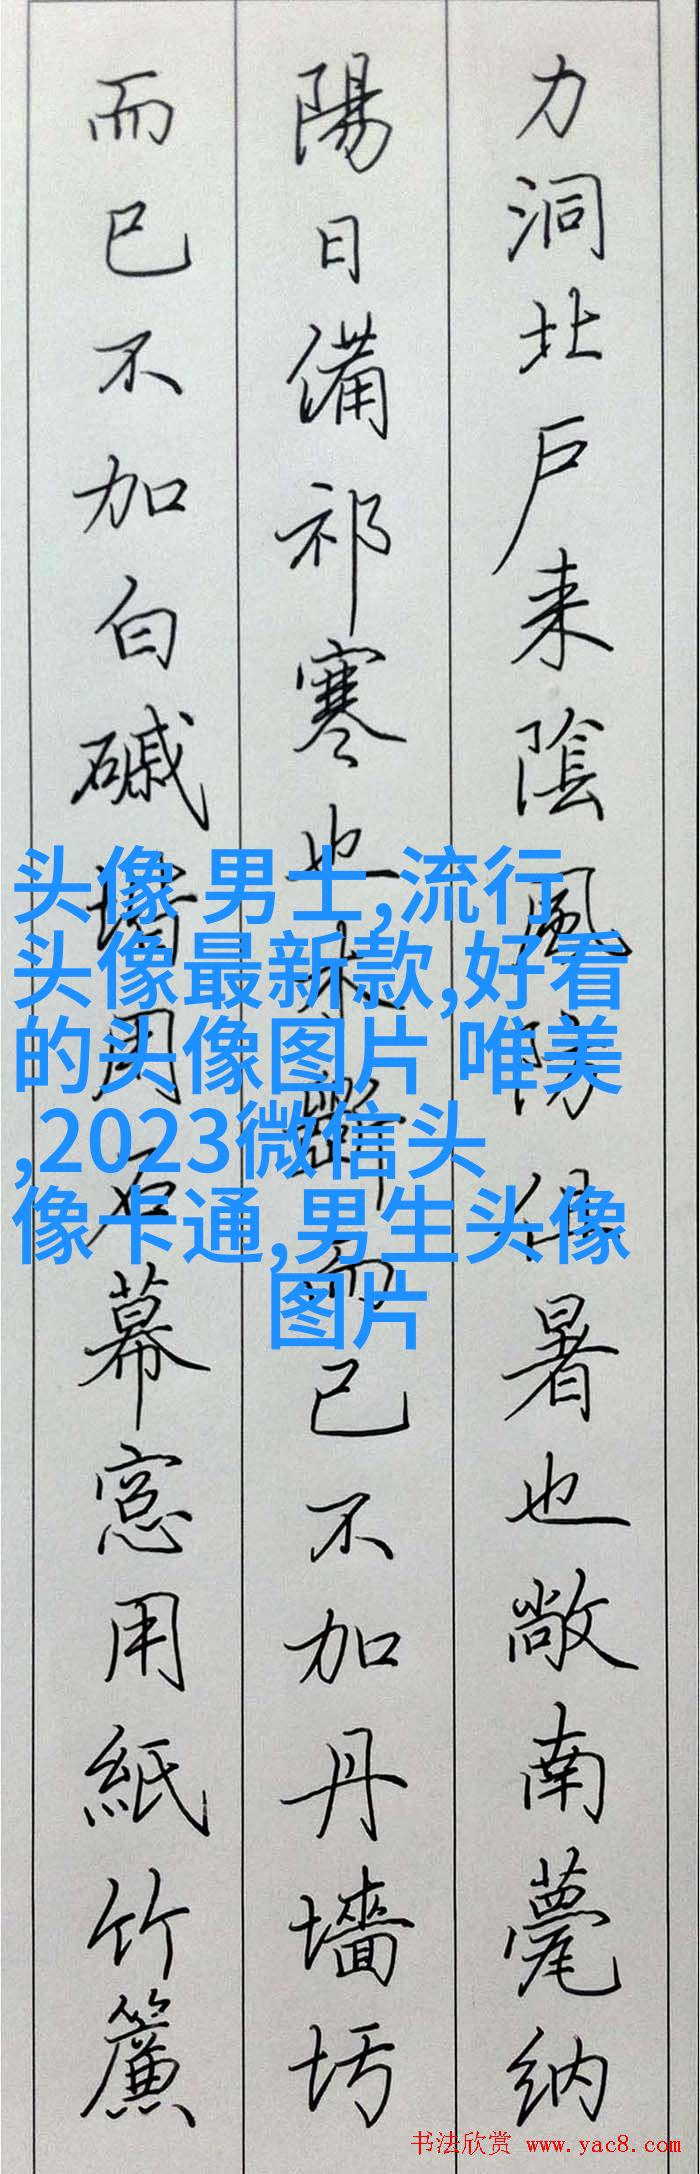 力洞北戶来陰風防徂暑也敞南甍納
陽日備祁寒也木斲而已不加丹墻圬
而已不加白磩堦用石幕窓用紙竹簾
头像 男士,流行
头像最新款,好看
的头像图片 唯美
,2023微信头
像卡通,男生头像
图片
书法欣赏 www.yac8.com